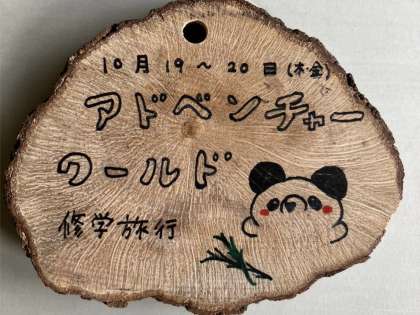 10月19～20日(木・金)
アドベンチャー
ワールド
修学旅行